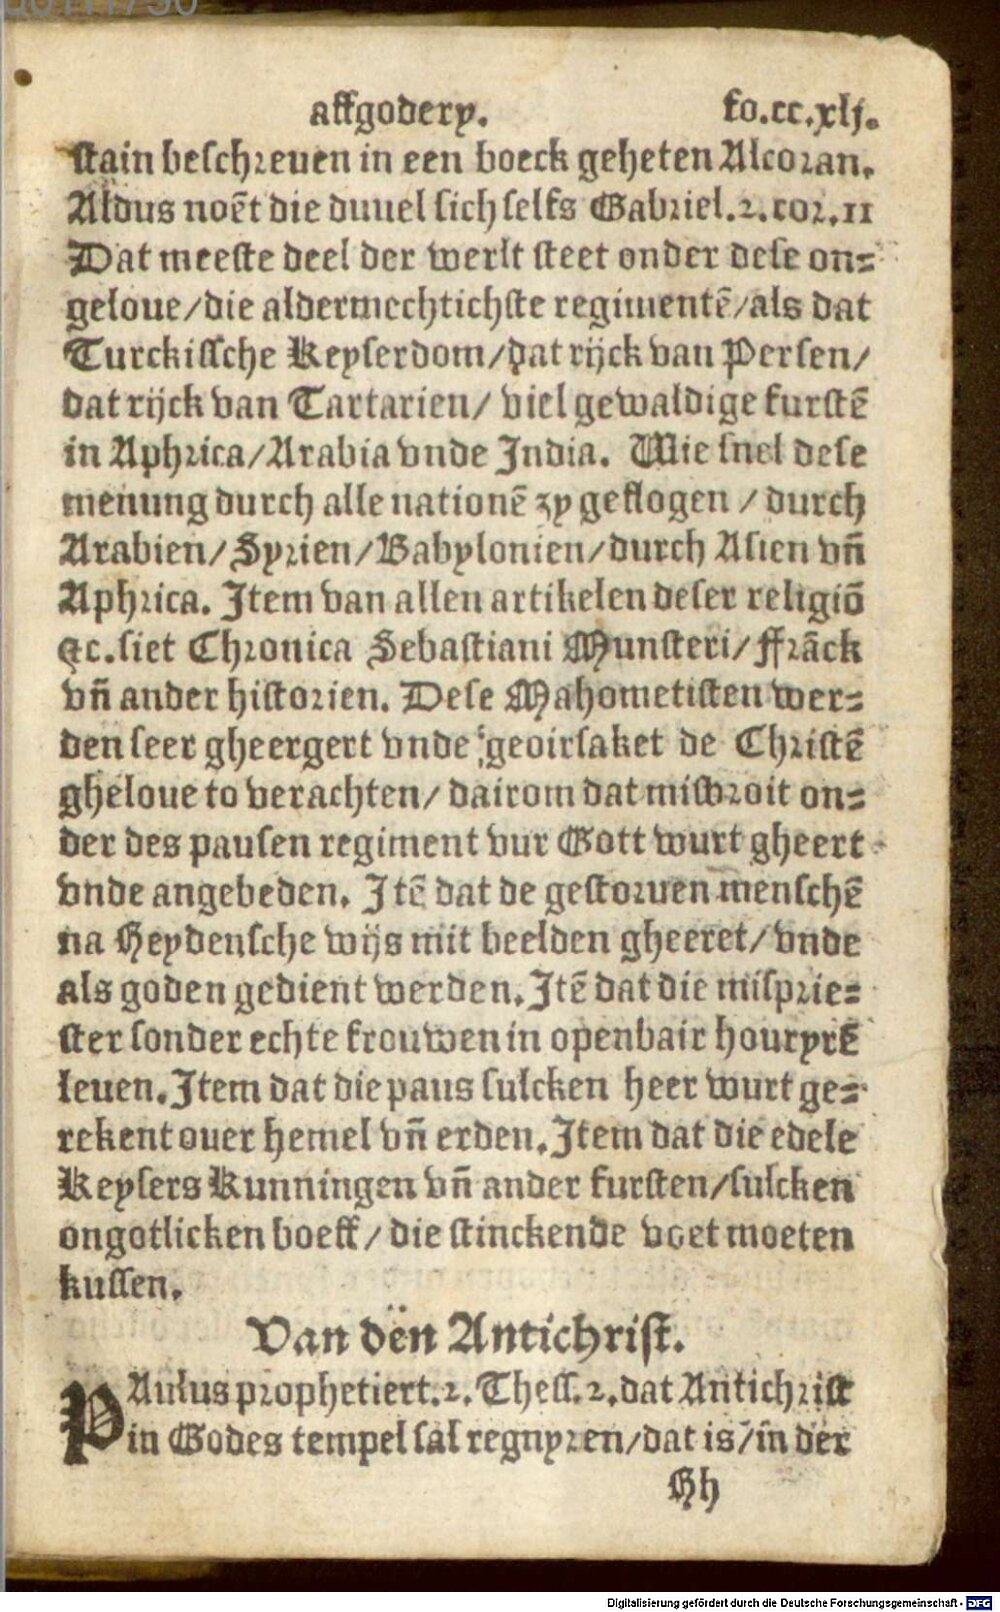 affgodery. fo.cc.xlj.
stain beschreuen in een boeck geheten Alcoran.
Aldus noēt die duuel sich selfs Gabriel.2.cor.11
Dat meeste deel der werlt steet onder dese on⸗
geloue/die aldermechtichste regimentē/als dat
Turckissche Keyserdom/dat rijck van Persen/
dat rijck van Tartarien/ viel gewaldige furstē
in Aphrica/Arabia vnde India. Wie snel dese
menung durch alle nationē zy geflogen / durch
Arabien/Syrien/Babylonien/durch Asien vñ
Aphrica. Item van allen artikelen deser religiō
ꝛc.siet Chronica Sebastiani Munsteri/ffrāck
vñ ander historien. Dese Mahometisten wer⸗
den seer gheergert vnde geoirsaket de Christē
gheloue to verachten/ dairom dat misbroit on⸗
der des pausen regiment vur Gott wurt gheert
vnde angebeden. Itē dat de gestoruen menschē
na Heydensche wijs mit beelden gheeret/ vnde
als goden gedient werden. Itē dat die misprie⸗
ster sonder echte frouwen in openbair houryrē
leuen. Item dat die paus sulcken heer wurt ge⸗
rekent ouer hemel vñ erden. Item dat die edele
Keysers Kunningen vñ ander fursten/sulcken
ongotlicken boeff/ die stinckende voet moeten
kussen.
Van dën Antichrist.
PAulus prophetiert.2.Thess.2.dat Antichrist
in Godes tempel sal regnyren/dat is/in der
Hh
Digitalisierung gefördert durch die Deutsche Forschungsgemeinschaft - DFG